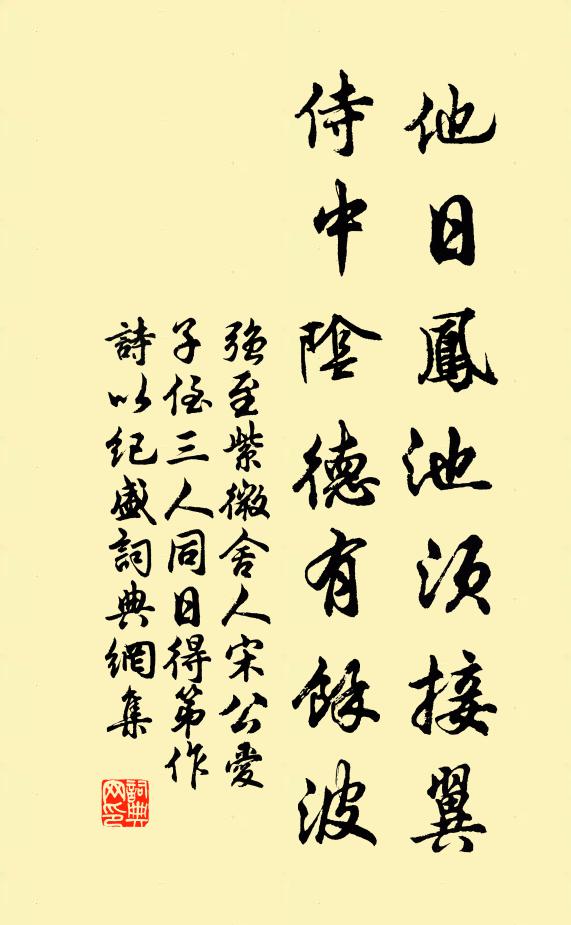 他日鳳池須接翼
侍中陰德有餘波
強至紫微舍人宋公愛
子侄三人同日得第作
詩以紀盛詞典網集
詞典網印